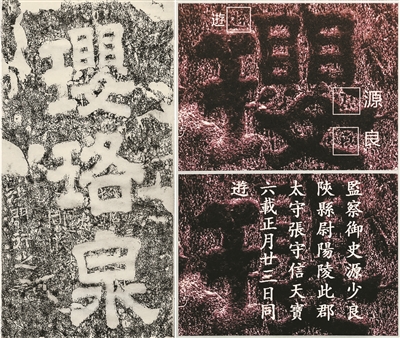 瓔珞泉
遊
源
良
監察御史源少良
陝縣尉陽陵此郡
太守張守信天寶
六載正月廿三日同
遊